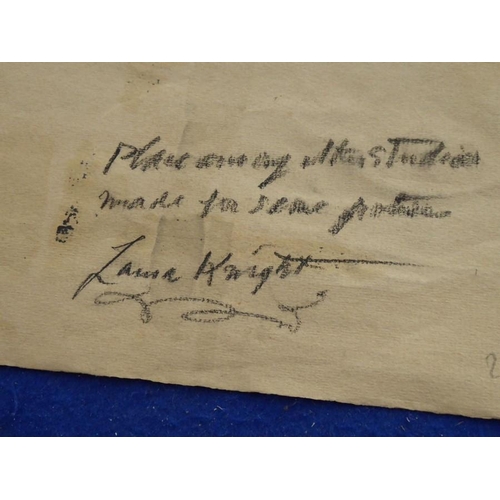 Place among other studies
made for same picture
Laura Knight
2